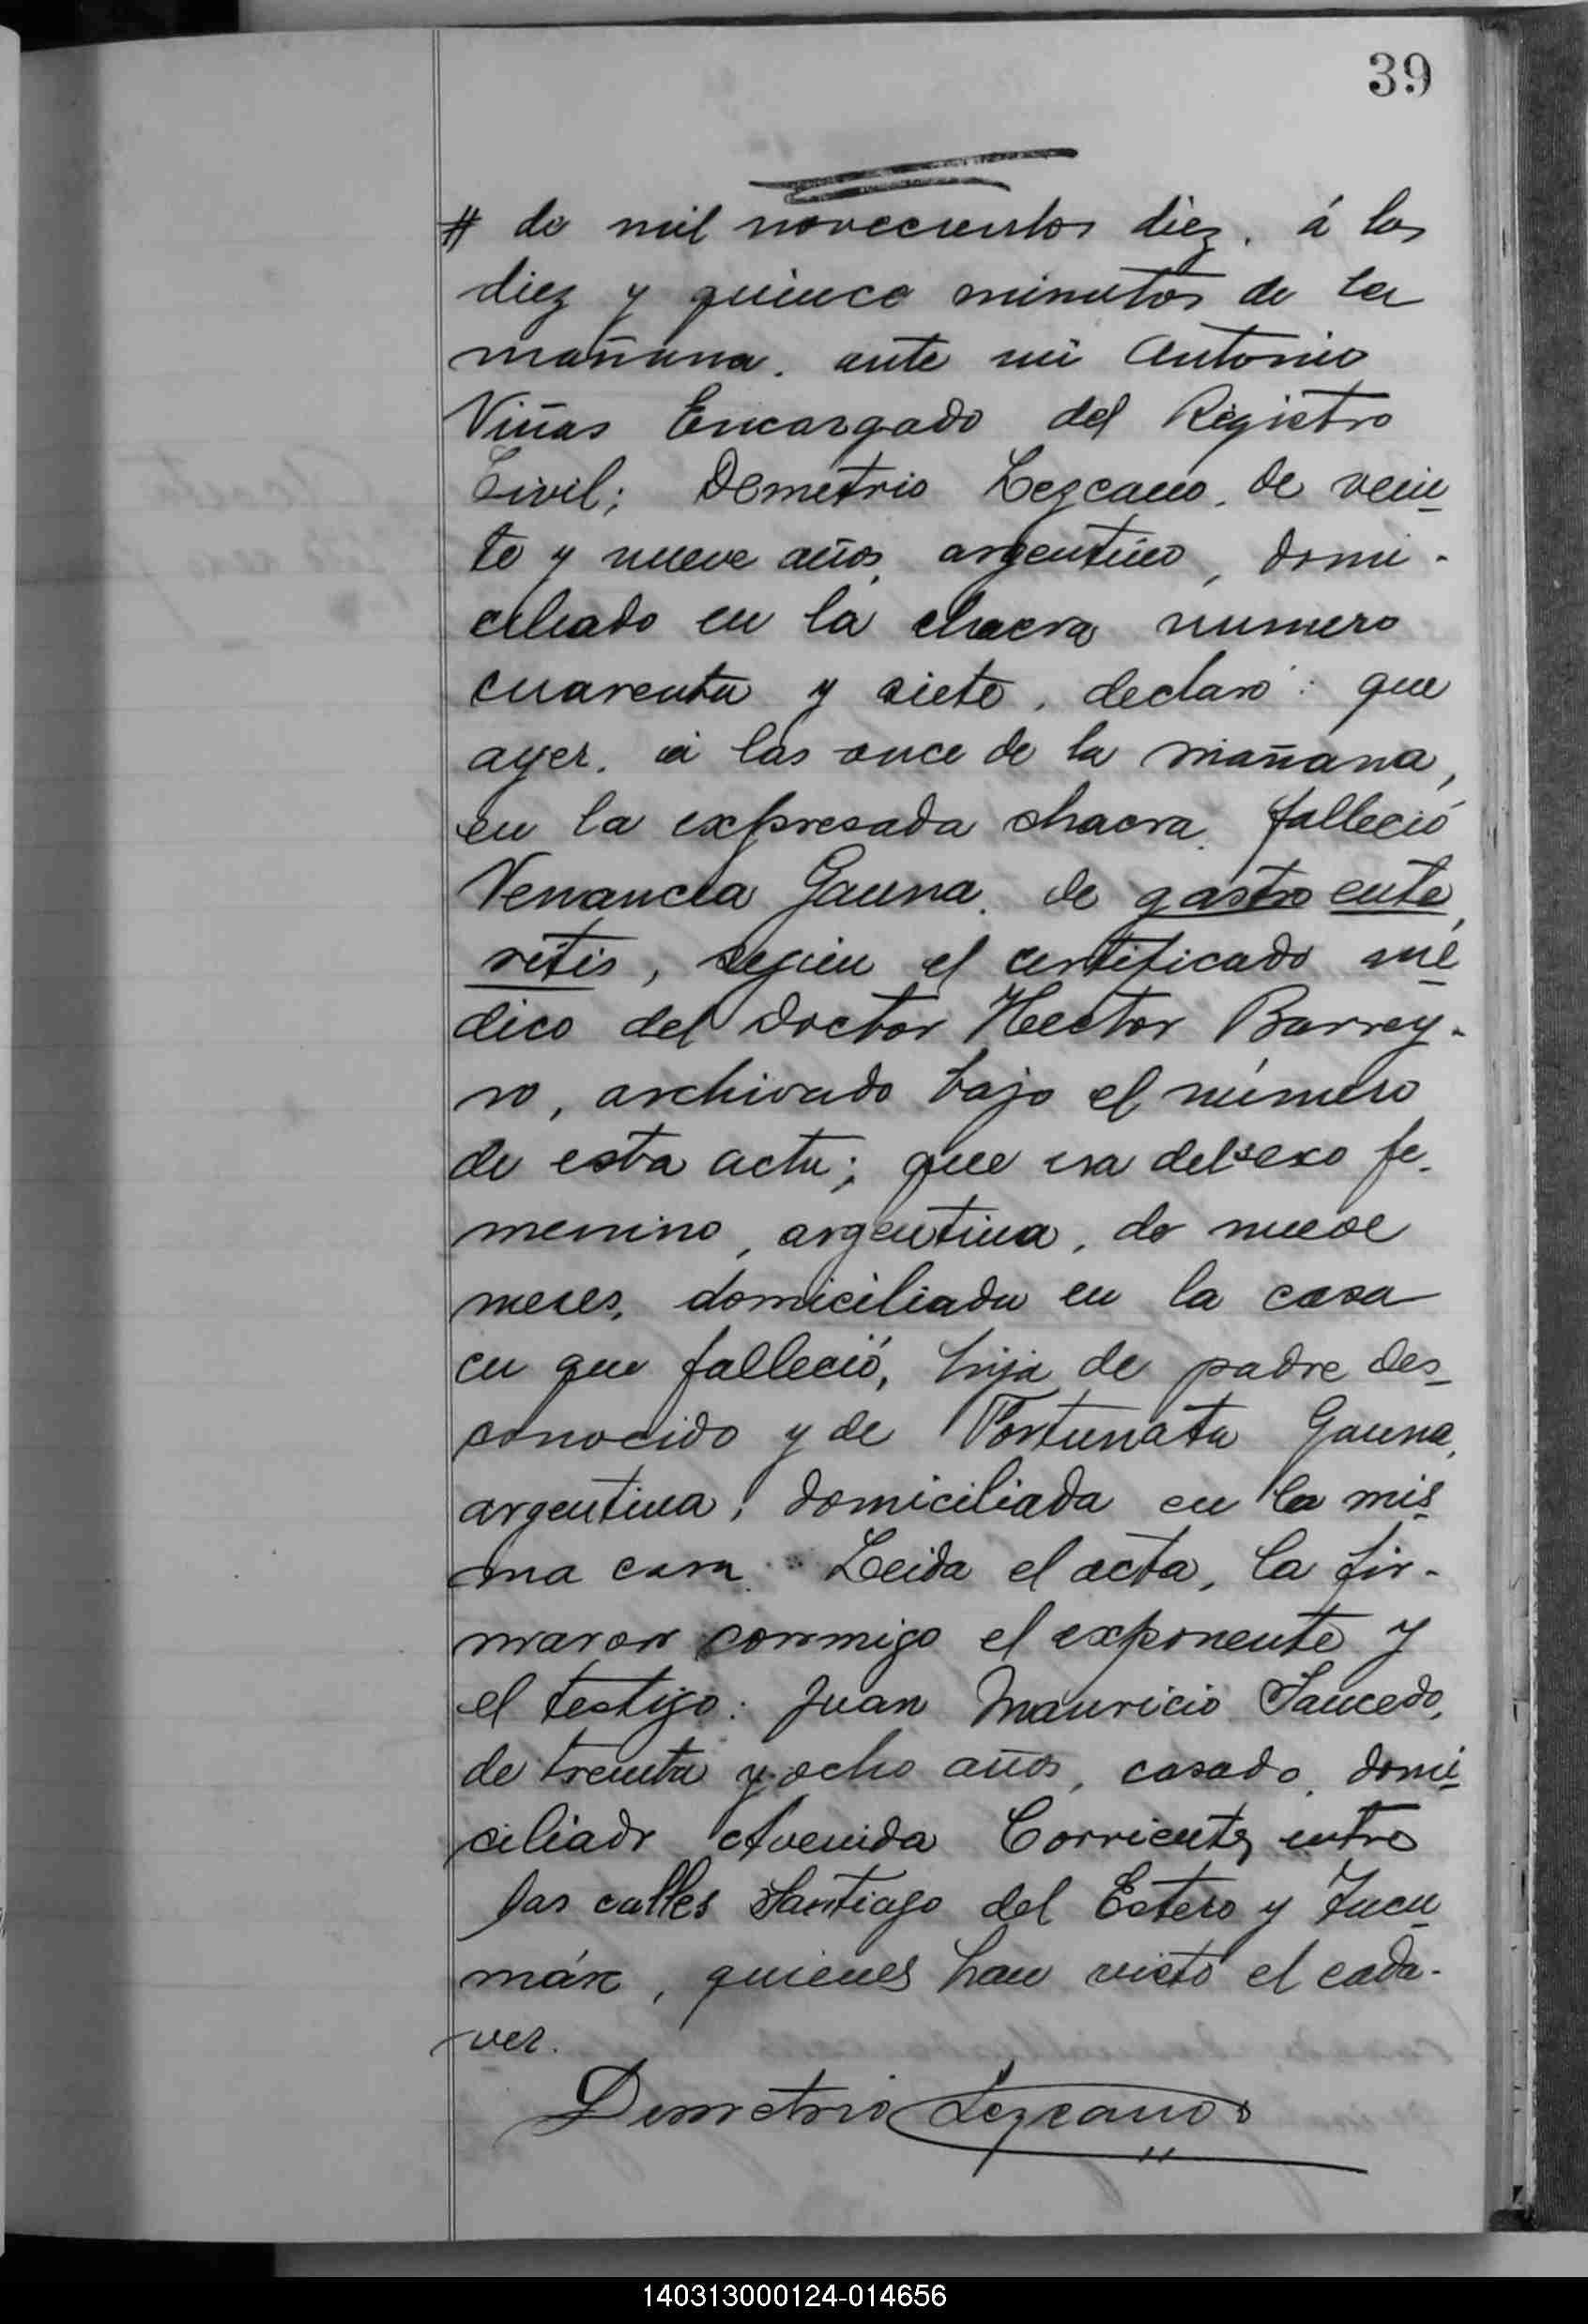 39
# de mil novecientos diez. á las
diez y quince minutos de la
mañana. ante mi Antonio
Viñas Encargado del Registro
Civil; Demetrio Lezcano, de vein_
te y nueve años, argentino, domi-
ciliado en la chacra numero
cuarenta y siete, declaró: que
ayer, á las once de la mañana,
en la expresada chacra, falleció
Venancia Gauna, de gastro ente
ritis, según el certificado mé
dico del doctor Hector Barrey-
ro, archivado bajo el número
de esta acta; que era del sexo fe-
menino, argentina, de nueve
meses, domiciliada en la casa
en que falleció, hija de padre des_
conocido y de Fortunata Gauna,
argentina, domiciliada en la mis_
ma casa. Leida el acta, la fir-
maron conmigo el exponente y
el testigo: Juan Mauricio Saucedo,
de treinta y ocho años, casado, domi_
ciliado Avenida Corrientes entre
las calles Santiago del Estero y Tucu_
mán, quienes han visto el cada-
ver.
Demetrio Lezcano
140313000124-014656